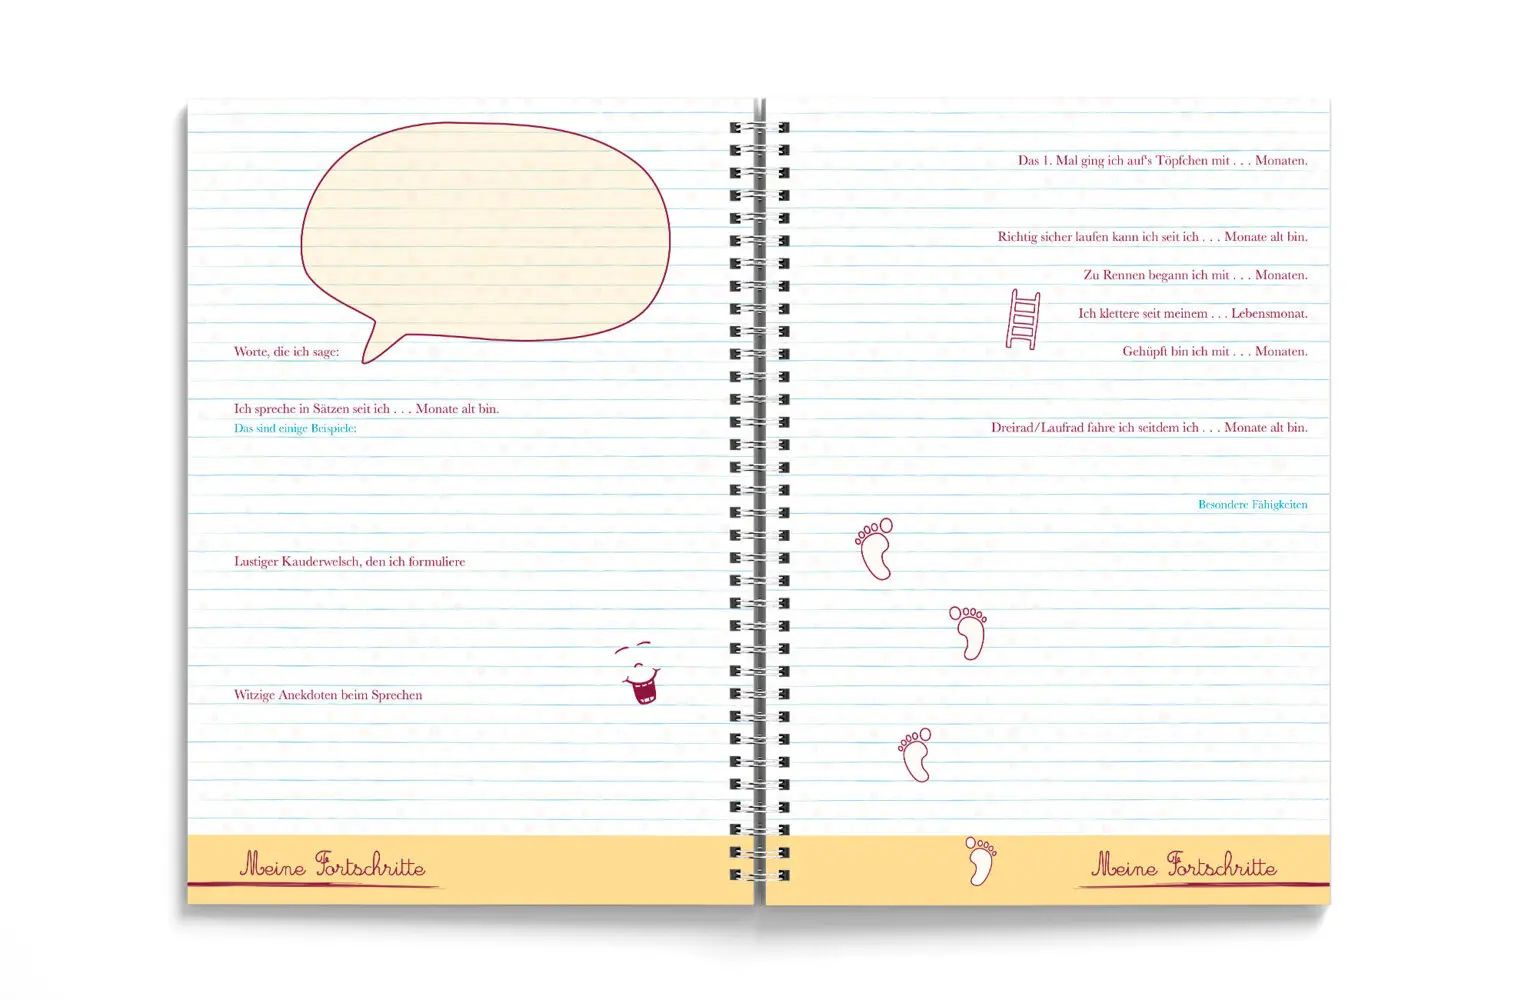 Worte, die ich sage:
Ich spreche in Sätzen seit ich . . . Monate alt bin.
Das sind einige Beispiele:
Lustiger Kauderwelsch, den ich formuliere
Witzige Anekdoten beim Sprechen
Meine Fortschritte
Das 1. Mal ging ich auf's Töpfchen mit . . . Monaten.
Richtig sicher laufen kann ich seit ich . . . Monate alt bin.
Zu Rennen begann ich mit . . . Monaten.
Ich klettere seit meinem . . . Lebensmonat.
Gehüpft bin ich mit . . . Monaten.
Dreirad/Laufrad fahre ich seitdem ich . . . Monate alt bin.
Besondere Fähigkeiten
Meine Fortschritte